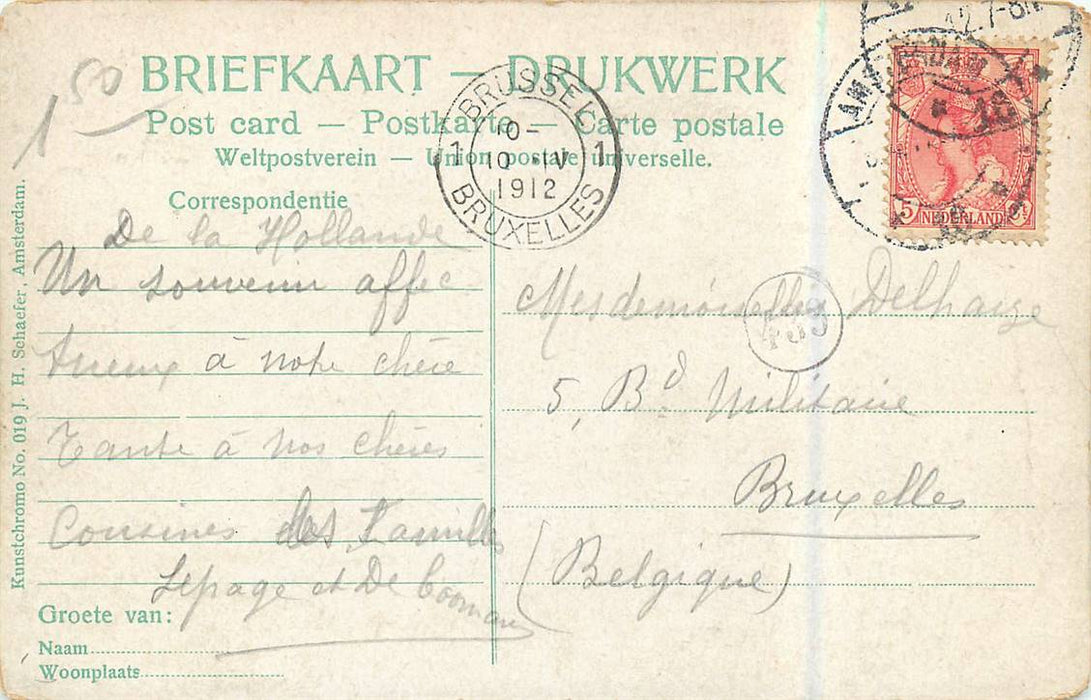 1 50
BRIEFKAART — DRUKWERK
Post card — Postkarte — Carte postale
Weltpostverein — Union postale universelle.
BRUSSEL
1 10- 1
10 IV
1912
BRUXELLES
AMSTERDAM
12.7-8N
5 NEDERLAND
Correspondentie
De la Hollande
Un souvenir affec
tueux à notre chère
Tante à nos chères
Cousines des Familles
Lepage et De Cooman
Groete van:
Naam
Woonplaats
Mesdemoiselles Delhaize
5, Bd Militaire
Bruxelles
(Belgique)
Kunstchromo No. 019 J. H. Schaefer, Amsterdam.